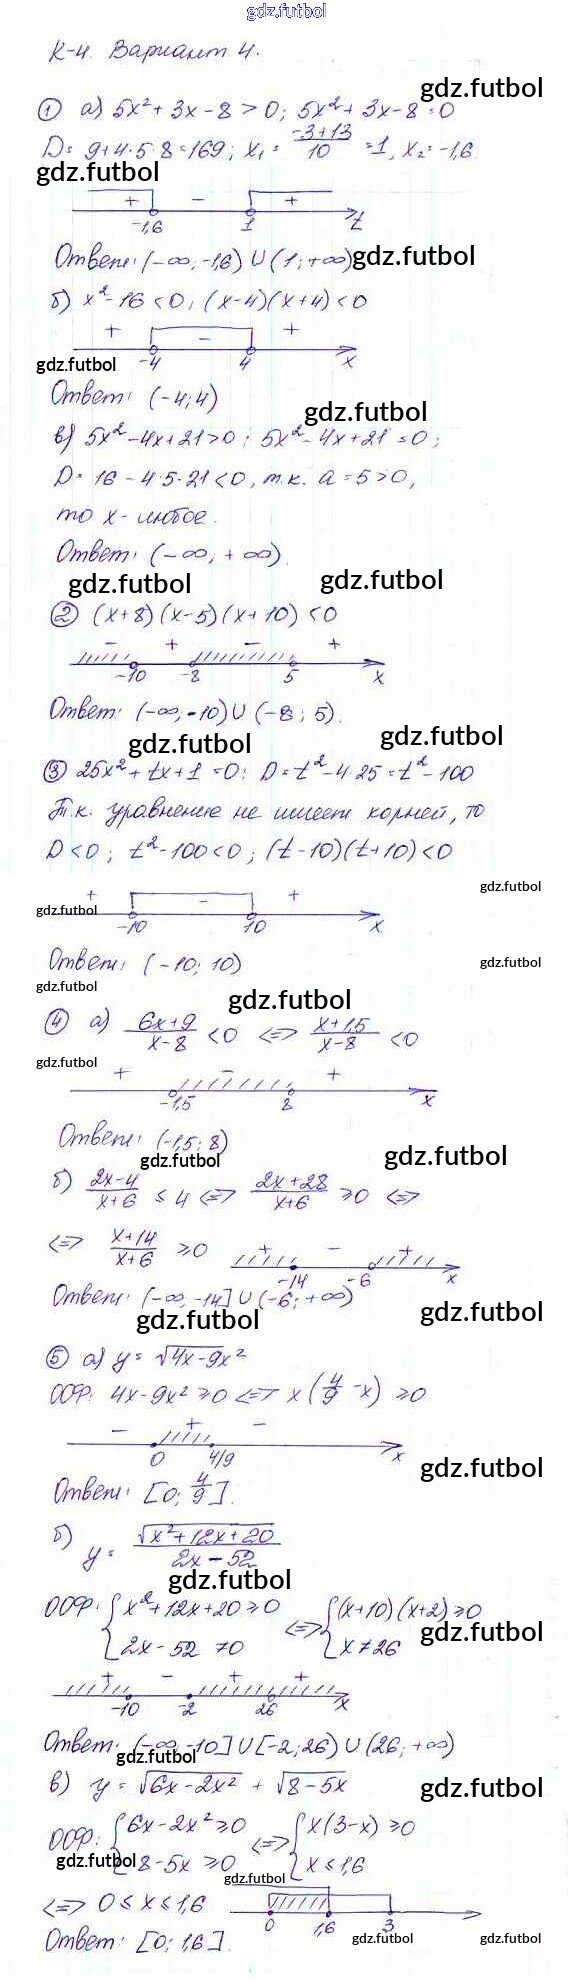 gdz.futbol
К-4. Вариант 4.
gdz.futbol
① а) 5x² + 3x - 8 > 0; 5x² + 3x - 8 = 0
D = 9 + 4·5·8 = 169; x₁ = (-3+13)/10 = 1, x₂ = -1,6.
gdz.futbol
+ - +
-1,6 1 t
Ответ: (-∞; -1,6) ∪ (1; +∞)
gdz.futbol
б) x² - 16 < 0; (x-4)(x+4) < 0
+ - +
gdz.futbol -4 4 x
Ответ: (-4; 4)
gdz.futbol
в) 5x² - 4x + 21 > 0; 5x² - 4x + 21 = 0;
D = 16 - 4·5·21 < 0, т.к. a = 5 > 0,
то x - любое.
Ответ: (-∞; +∞)
gdz.futbol gdz.futbol
② (x+8)(x-5)(x+10) < 0
- + - +
-10 -8 5 x
Ответ: (-∞; -10) ∪ (-8; 5).
gdz.futbol gdz.futbol
③ 25x² + tx + 1 = 0; D = t² - 4·25 = t² - 100
Т.к. уравнение не имеет корней, то
D < 0; t² - 100 < 0; (t-10)(t+10) < 0
gdz.futbol
+ - +
gdz.futbol
-10 10 x
Ответ: (-10; 10)
gdz.futbol
gdz.futbol
gdz.futbol
④ а) (6x+9)/(x-8) < 0 <=> (x+1,5)/(x-8) < 0
gdz.futbol
+ - +
-1,5 8 x
Ответ: (-1,5; 8)
gdz.futbol gdz.futbol
б) (2x-4)/(x+6) ≤ 4 <=> (2x+28)/(x+6) ≥ 0 <=>
<=> (x+14)/(x+6) ≥ 0
+ - +
-14 -6 x
Ответ: (-∞; -14] ∪ (-6; +∞)
gdz.futbol gdz.futbol
⑤ а) y = √(4x-9x²)
ООФ: 4x - 9x² ≥ 0 <=> x(4/9 - x) ≥ 0
- + -
0 4/9 x
gdz.futbol
Ответ: [0; 4/9].
б) y = √(x²+12x+20)/(2x-52)
gdz.futbol
ООФ: { x² + 12x + 20 ≥ 0 <=> { (x+10)(x+2) ≥ 0
2x - 52 ≠ 0 x ≠ 26
gdz.futbol
+ - + +
-10 -2 26 x
Ответ: (-∞; -10] ∪ [-2; 26) ∪ (26; +∞)
gdz.futbol
в) y = √(6x-2x²) + √(8-5x)
gdz.futbol
ООФ: { 6x - 2x² ≥ 0 <=> { x(3-x) ≥ 0
8 - 5x ≥ 0 x ≤ 1,6
gdz.futbol
gdz.futbol
<=> 0 ≤ x ≤ 1,6
0 1,6 3
Ответ: [0; 1,6].
gdz.futbol gdz.futbol